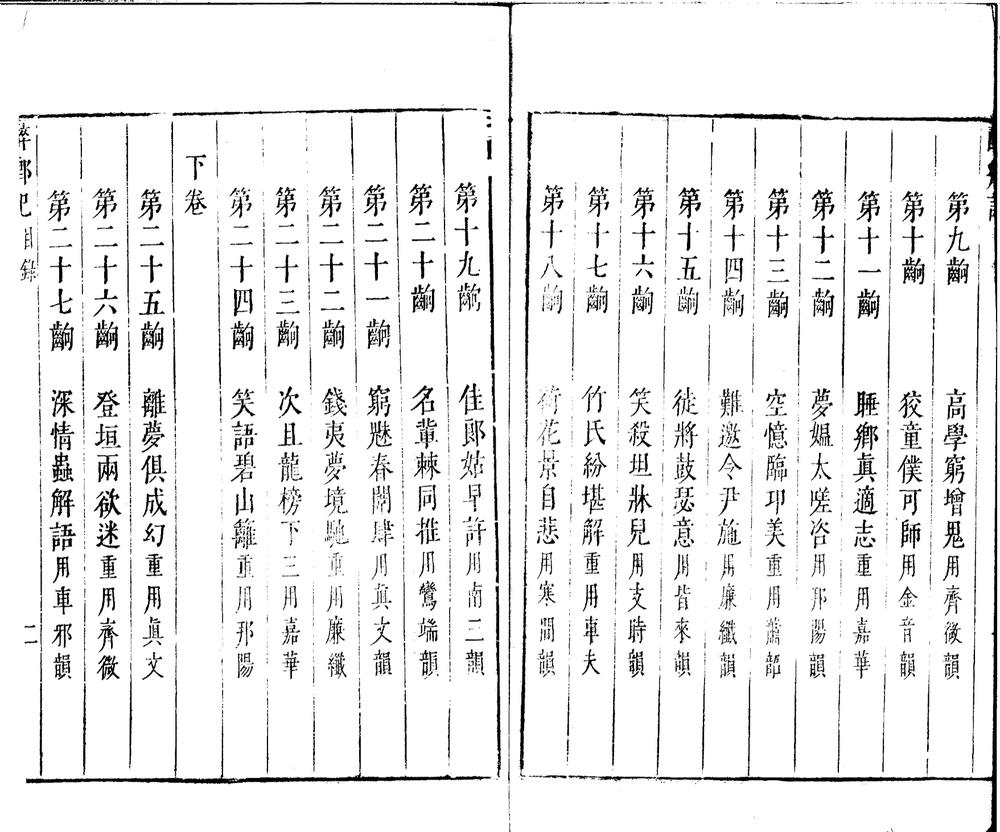 第九齣 高學窮增鬼用齊微韻
第十齣 狡童僕可師用金音韻
第十一齣 睡鄉眞適志重用嘉華
第十二齣 夢媼太嗟咨用邦陽韻
第十三齣 空憶臨邛美重用蕭韶
第十四齣 難邀令尹施用廉纖韻
第十五齣 徒將鼓瑟意用皆來韻
第十六齣 笑殺坦牀兒用支時韻
第十七齣 竹氏紛堪解重用車夫
第十八齣 荷花景自悲用寒間韻
第十九齣 佳郎姑早許用南三韻
第二十齣 名輩棘同推用鸞端韻
第二十一齣 窮魅春闈肆用眞文韻
第二十二齣 錢夷夢境馳重用廉纖
第二十三齣 次且龍榜下三用嘉華
第二十四齣 笑語碧山籬重用邦陽
下卷
第二十五齣 離夢俱成幻重用眞文
第二十六齣 登垣兩欲迷重用齊微
第二十七齣 深情蟲解語用車邪韻
醉鄉記目錄 二